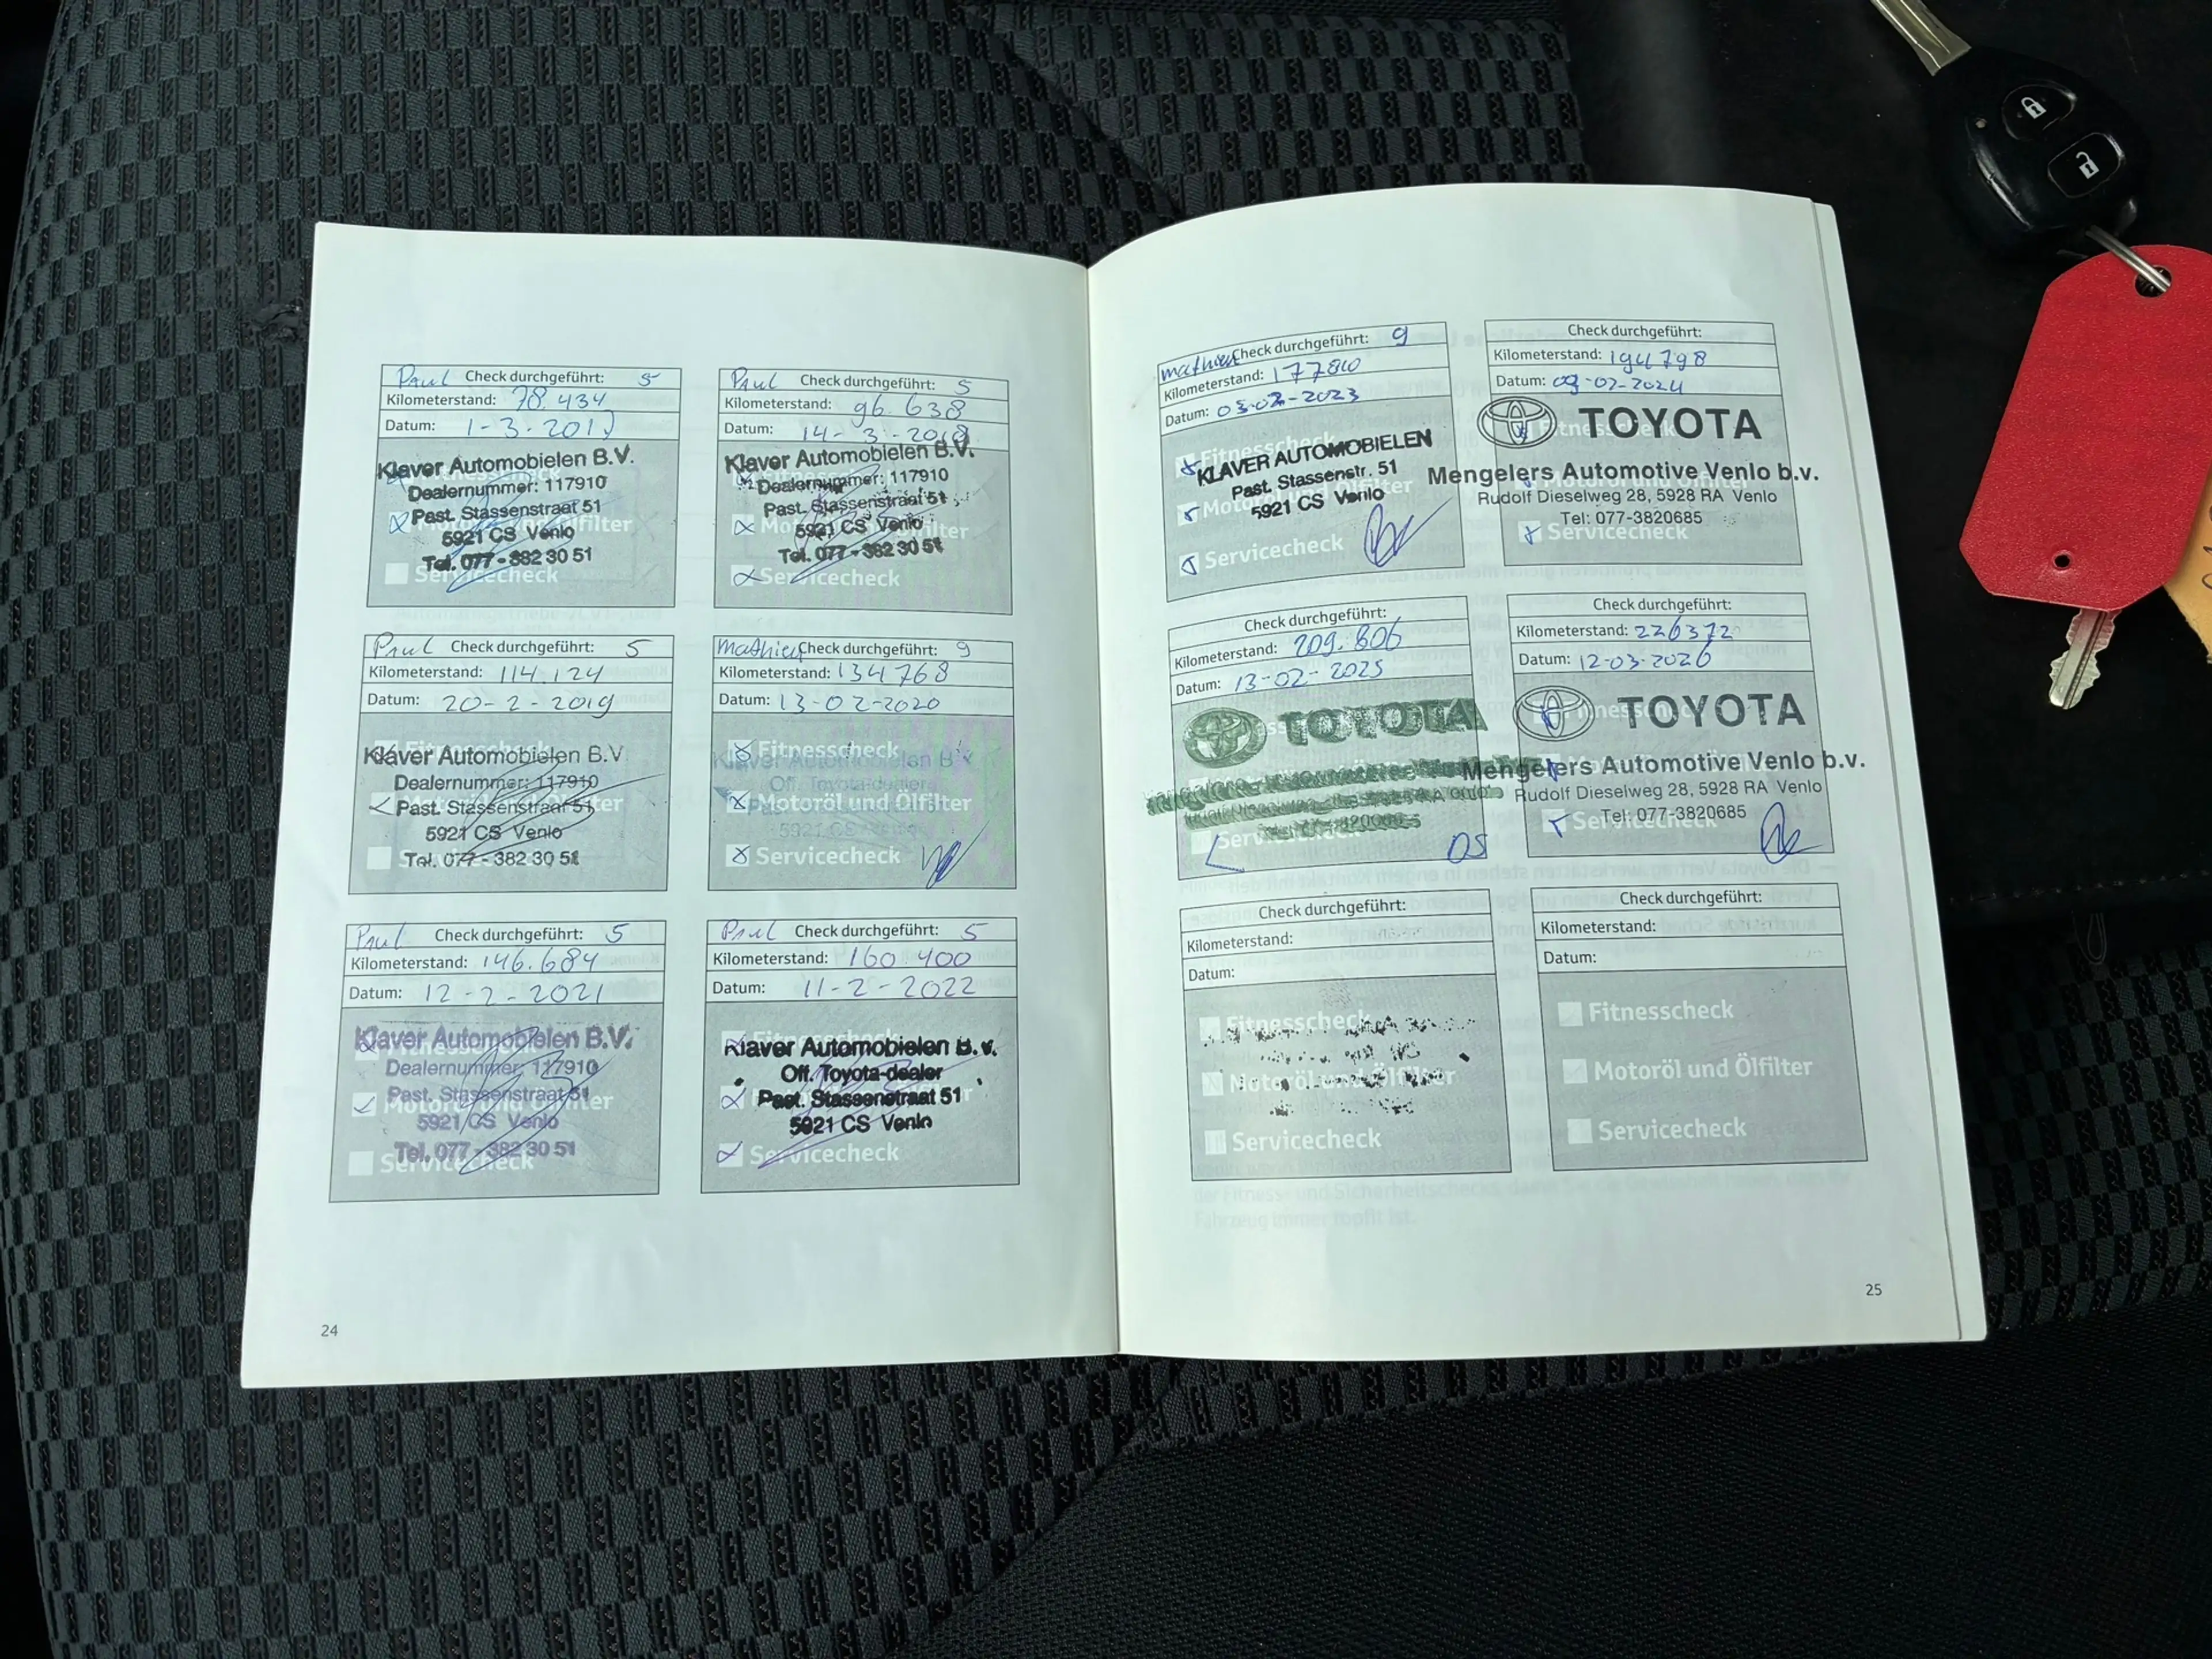 Paul Check durchgeführt: 5
Kilometerstand: 78.434
Datum: 1-3-2017
Klaver Automobielen B.V.
Dealernummer: 117910
Past. Stassenstraat 51
5921 CS Venlo
Tel. 077-382 30 51
Servicecheck
Paul Check durchgeführt: 5
Kilometerstand: 96.638
Datum: 14-3-2018
Klaver Automobielen B.V.
Dealernummer: 117910
Past. Stassenstraat 51
5921 CS Venlo
Tel. 077-382 30 51
Servicecheck
Paul Check durchgeführt: 5
Kilometerstand: 114.124
Datum: 20-2-2019
Klaver Automobielen B.V
Dealernummer: 117910
Past. Stassenstraat 51
5921 CS Venlo
Tel. 077-382 30 51
Mathieu Check durchgeführt: 9
Kilometerstand: 134768
Datum: 13-02-2020
Fitnesscheck
Klaver Automobielen B.V
Off. Toyota-dealer
Motoröl und Ölfilter
5921 CS Venlo
Servicecheck
Paul Check durchgeführt: 5
Kilometerstand: 146.684
Datum: 12-2-2021
Klaver Automobielen B.V.
Dealernummer: 117910
Past. Stassenstraat 51
5921 CS Venlo
Tel. 077-382 30 51
Servicecheck
Paul Check durchgeführt: 5
Kilometerstand: 160.400
Datum: 11-2-2022
Klaver Automobielen B.V.
Off. Toyota-dealer
Past. Stassenstraat 51
5921 CS Venlo
Servicecheck
24
Mathieu Check durchgeführt: 9
Kilometerstand: 177810
Datum: 03-02-2023
Fitnesscheck
KLAVER AUTOMOBIELEN
Past. Stassenstr. 51
5921 CS Venlo
Servicecheck
Check durchgeführt:
Kilometerstand: 194798
Datum: 09-02-2024
Fitnesscheck
TOYOTA
Mengelers Automotive Venlo b.v.
Rudolf Dieselweg 28, 5928 RA Venlo
Tel: 077-3820685
Servicecheck
Check durchgeführt:
Kilometerstand: 209.806
Datum: 13-02-2025
TOYOTA
Servicecheck
DS
Check durchgeführt:
Kilometerstand: 226372
Datum: 12-03-2026
TOYOTA
Mengelers Automotive Venlo b.v.
Rudolf Dieselweg 28, 5928 RA Venlo
Tel: 077-3820685
Servicecheck
Check durchgeführt:
Kilometerstand:
Datum:
Fitnesscheck
Motoröl und Ölfilter
Servicecheck
Check durchgeführt:
Kilometerstand:
Datum:
Fitnesscheck
Motoröl und Ölfilter
Servicecheck
25